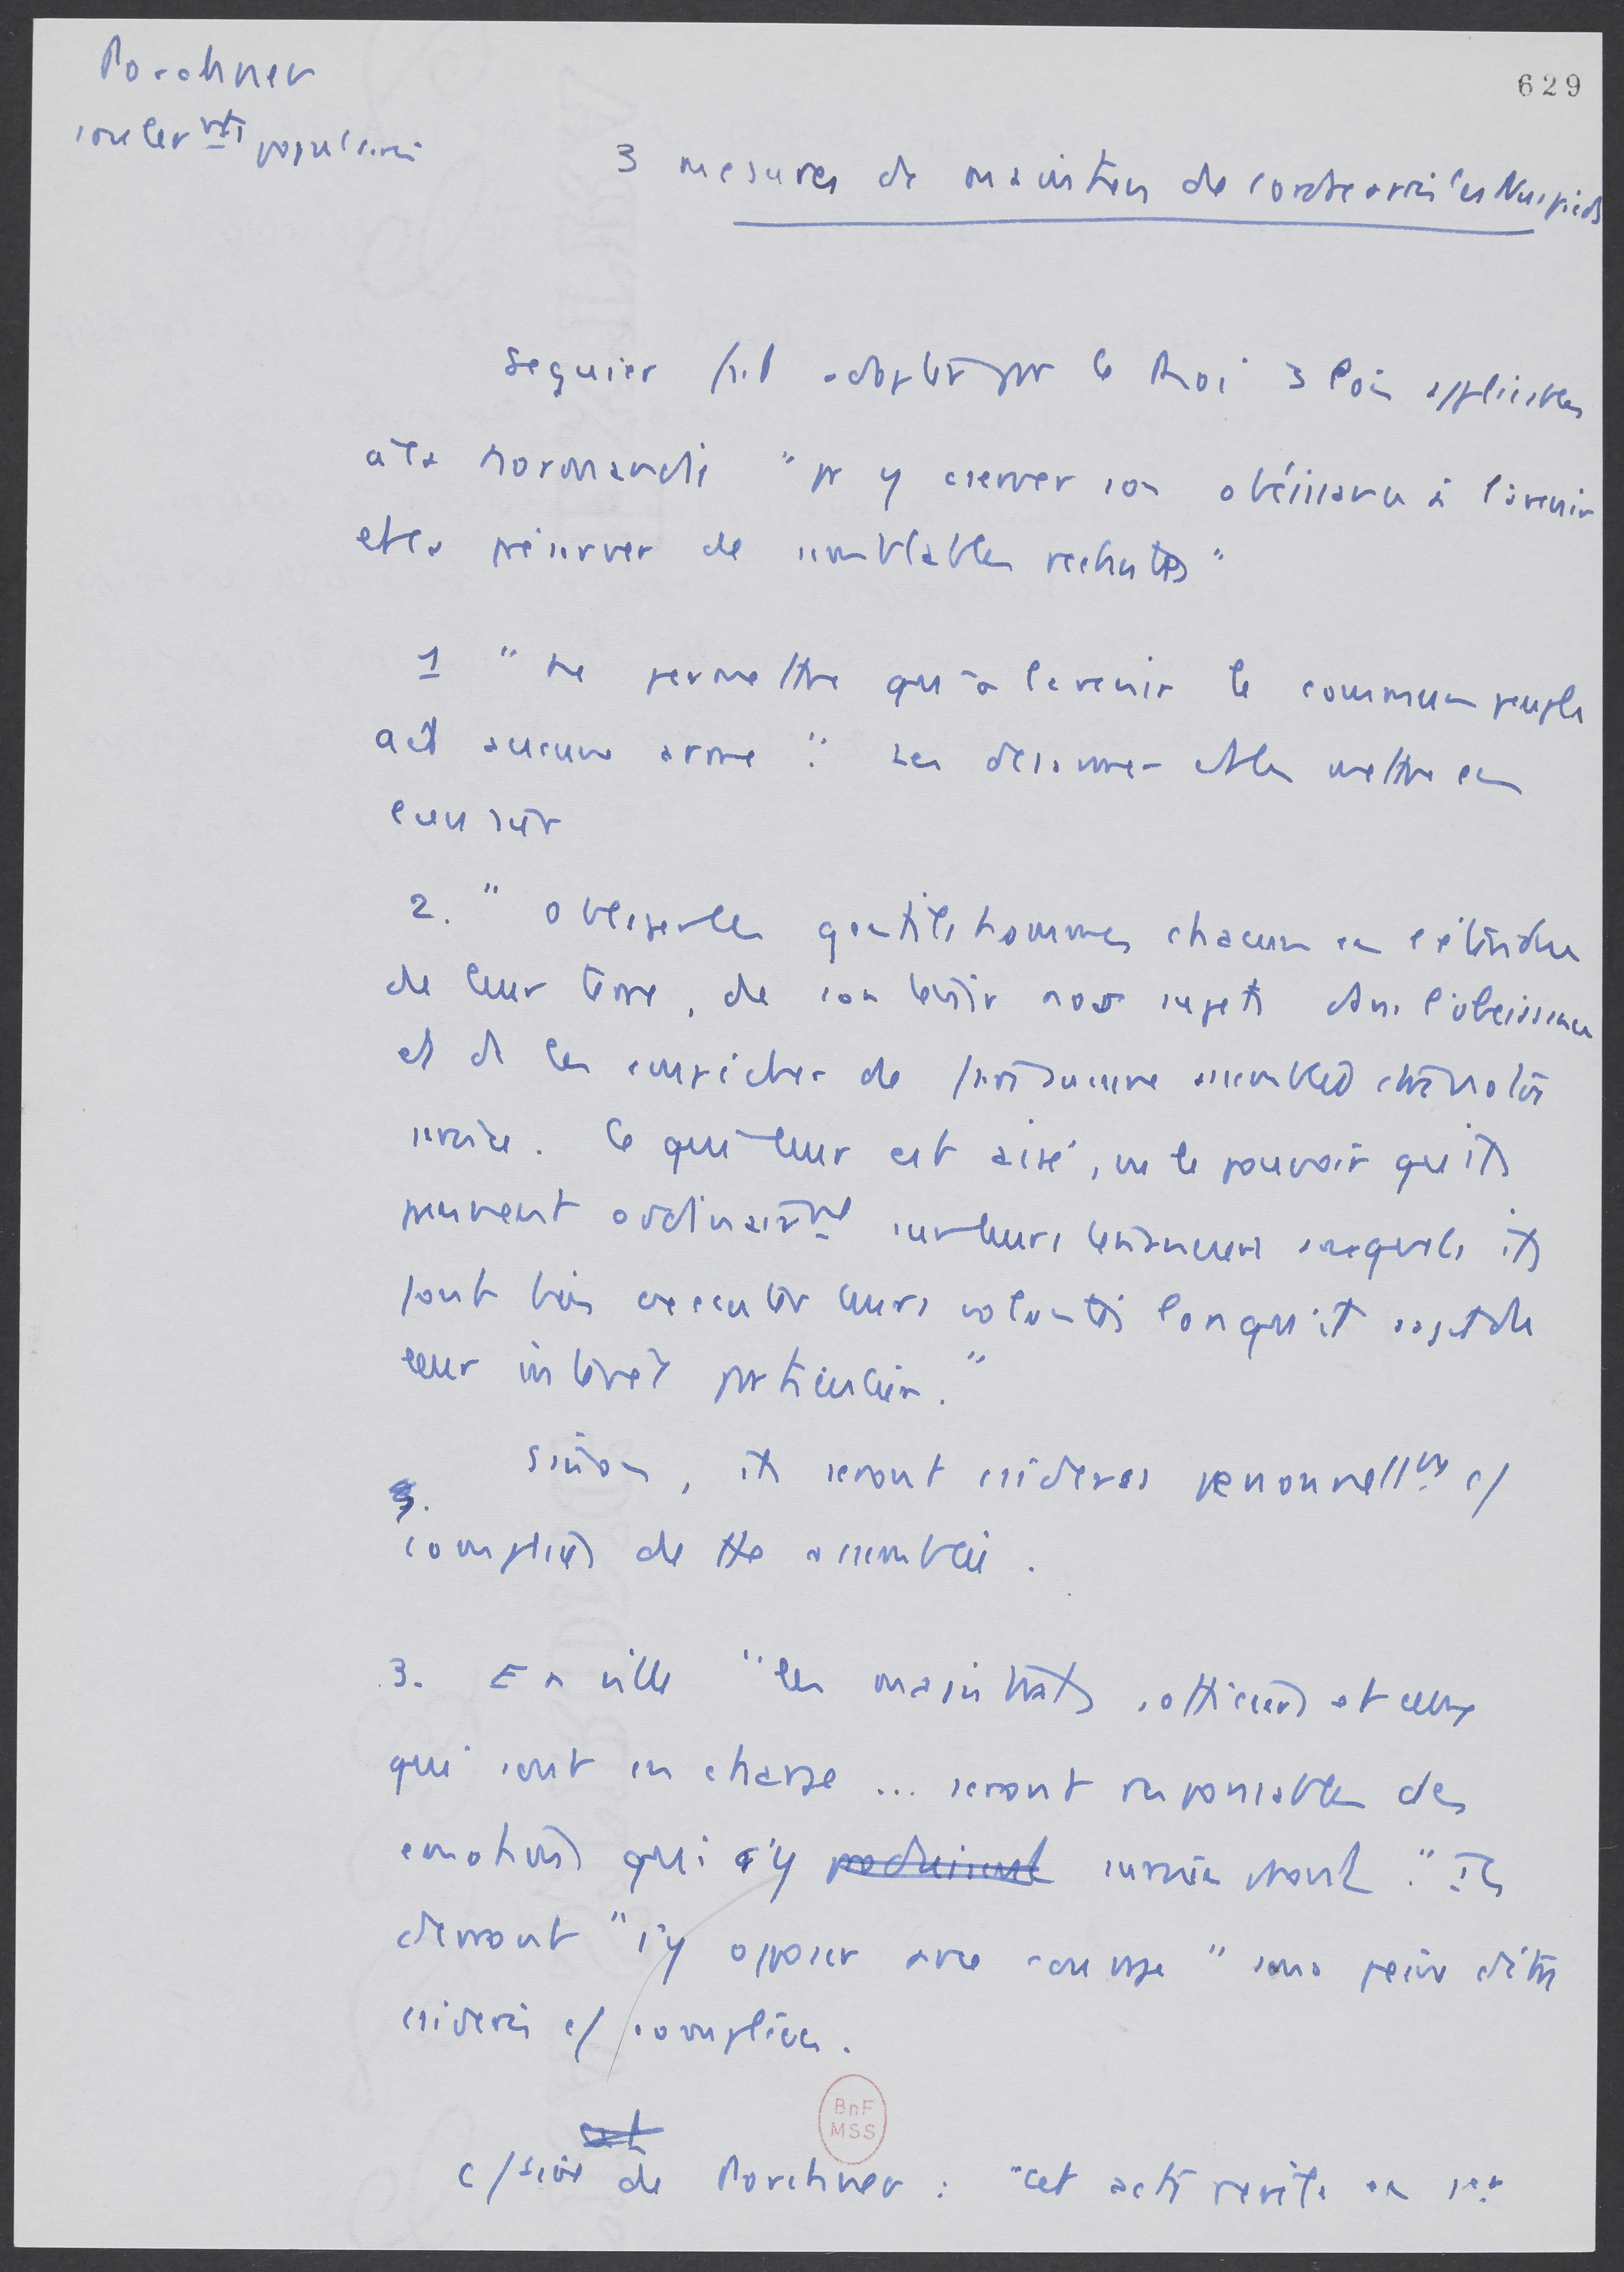 Porchnev
soulev mts populaires
629
3 mesures de maintien de l'ordre après les Nu-pieds
Séguier fait adopter par le Roi 3 lois applicables
à la Normandie "pr y conserver son obéissance à l'avenir
et la préserver de semblables rechutes"
1 "Ne permettre qu'à l'avenir le commun peuple
ait aucune arme". Les désarmer et les mettre en
lieu sûr
2. "obliger les gentilshommes chacun en l'étendue
de leur terre, de contenir nos sujets dans l'obéissance
et de les empêcher de faire aucune assemblée
. Ce qui leur est aisé, vu le pouvoir qu'ils
peuvent ordinairemt sur leurs tenanciers auxquels ils
font bien exécuter leurs volontés lorsqu'il s'agit de
leur intérêt particulier."
Sinon, ils seront csidérés personnellmt c/
complices de tte assemblée.
3. En ville "les magistrats, officiers et ceux
qui sont en charge ... seront responsables des
émotions qui s'y produisent surviendront". Ils
devront "s'y opposer avec courage" sous peine d'être
csidérés c/ complices.
c/taire de Porchnev : "cet acte révèle en
BnF
MSS